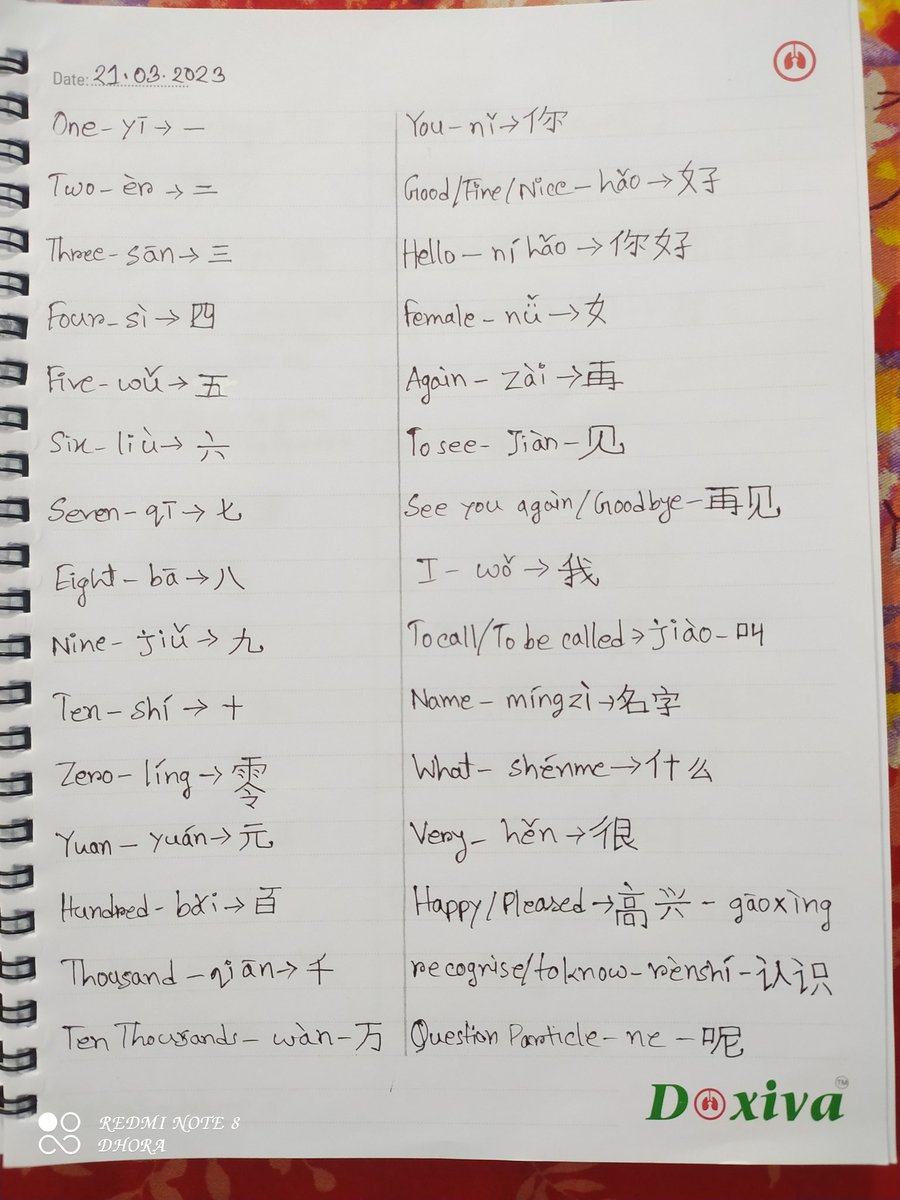 Date: 21.03.2023
One - yī → 一
Two - èr → 二
Three - sān → 三
Four - sì → 四
Five - wǔ → 五
Six - liù → 六
Seven - qī → 七
Eight - bā → 八
Nine - jiǔ → 九
Ten - shí → 十
Zero - líng → 零
Yuan - yuán → 元
Hundred - bǎi → 百
Thousand - qiān → 千
Ten Thousands - wàn - 万
You - nǐ → 你
Good/Fine/Nice - hǎo → 好
Hello - ní hǎo → 你好
Female - nǚ → 女
Again - zài → 再
To see - Jiàn - 见
See you again/Goodbye - 再见
I - wǒ → 我
To call/To be called → jiào - 叫
Name - míngzì → 名字
What - shénme → 什么
Very - hěn → 很
Happy/Pleased → 高兴 - gāoxìng
recognise/to know - rènshí - 认识
Question Particle - ne - 呢
Doxiva™
REDMI NOTE 8
DHORA